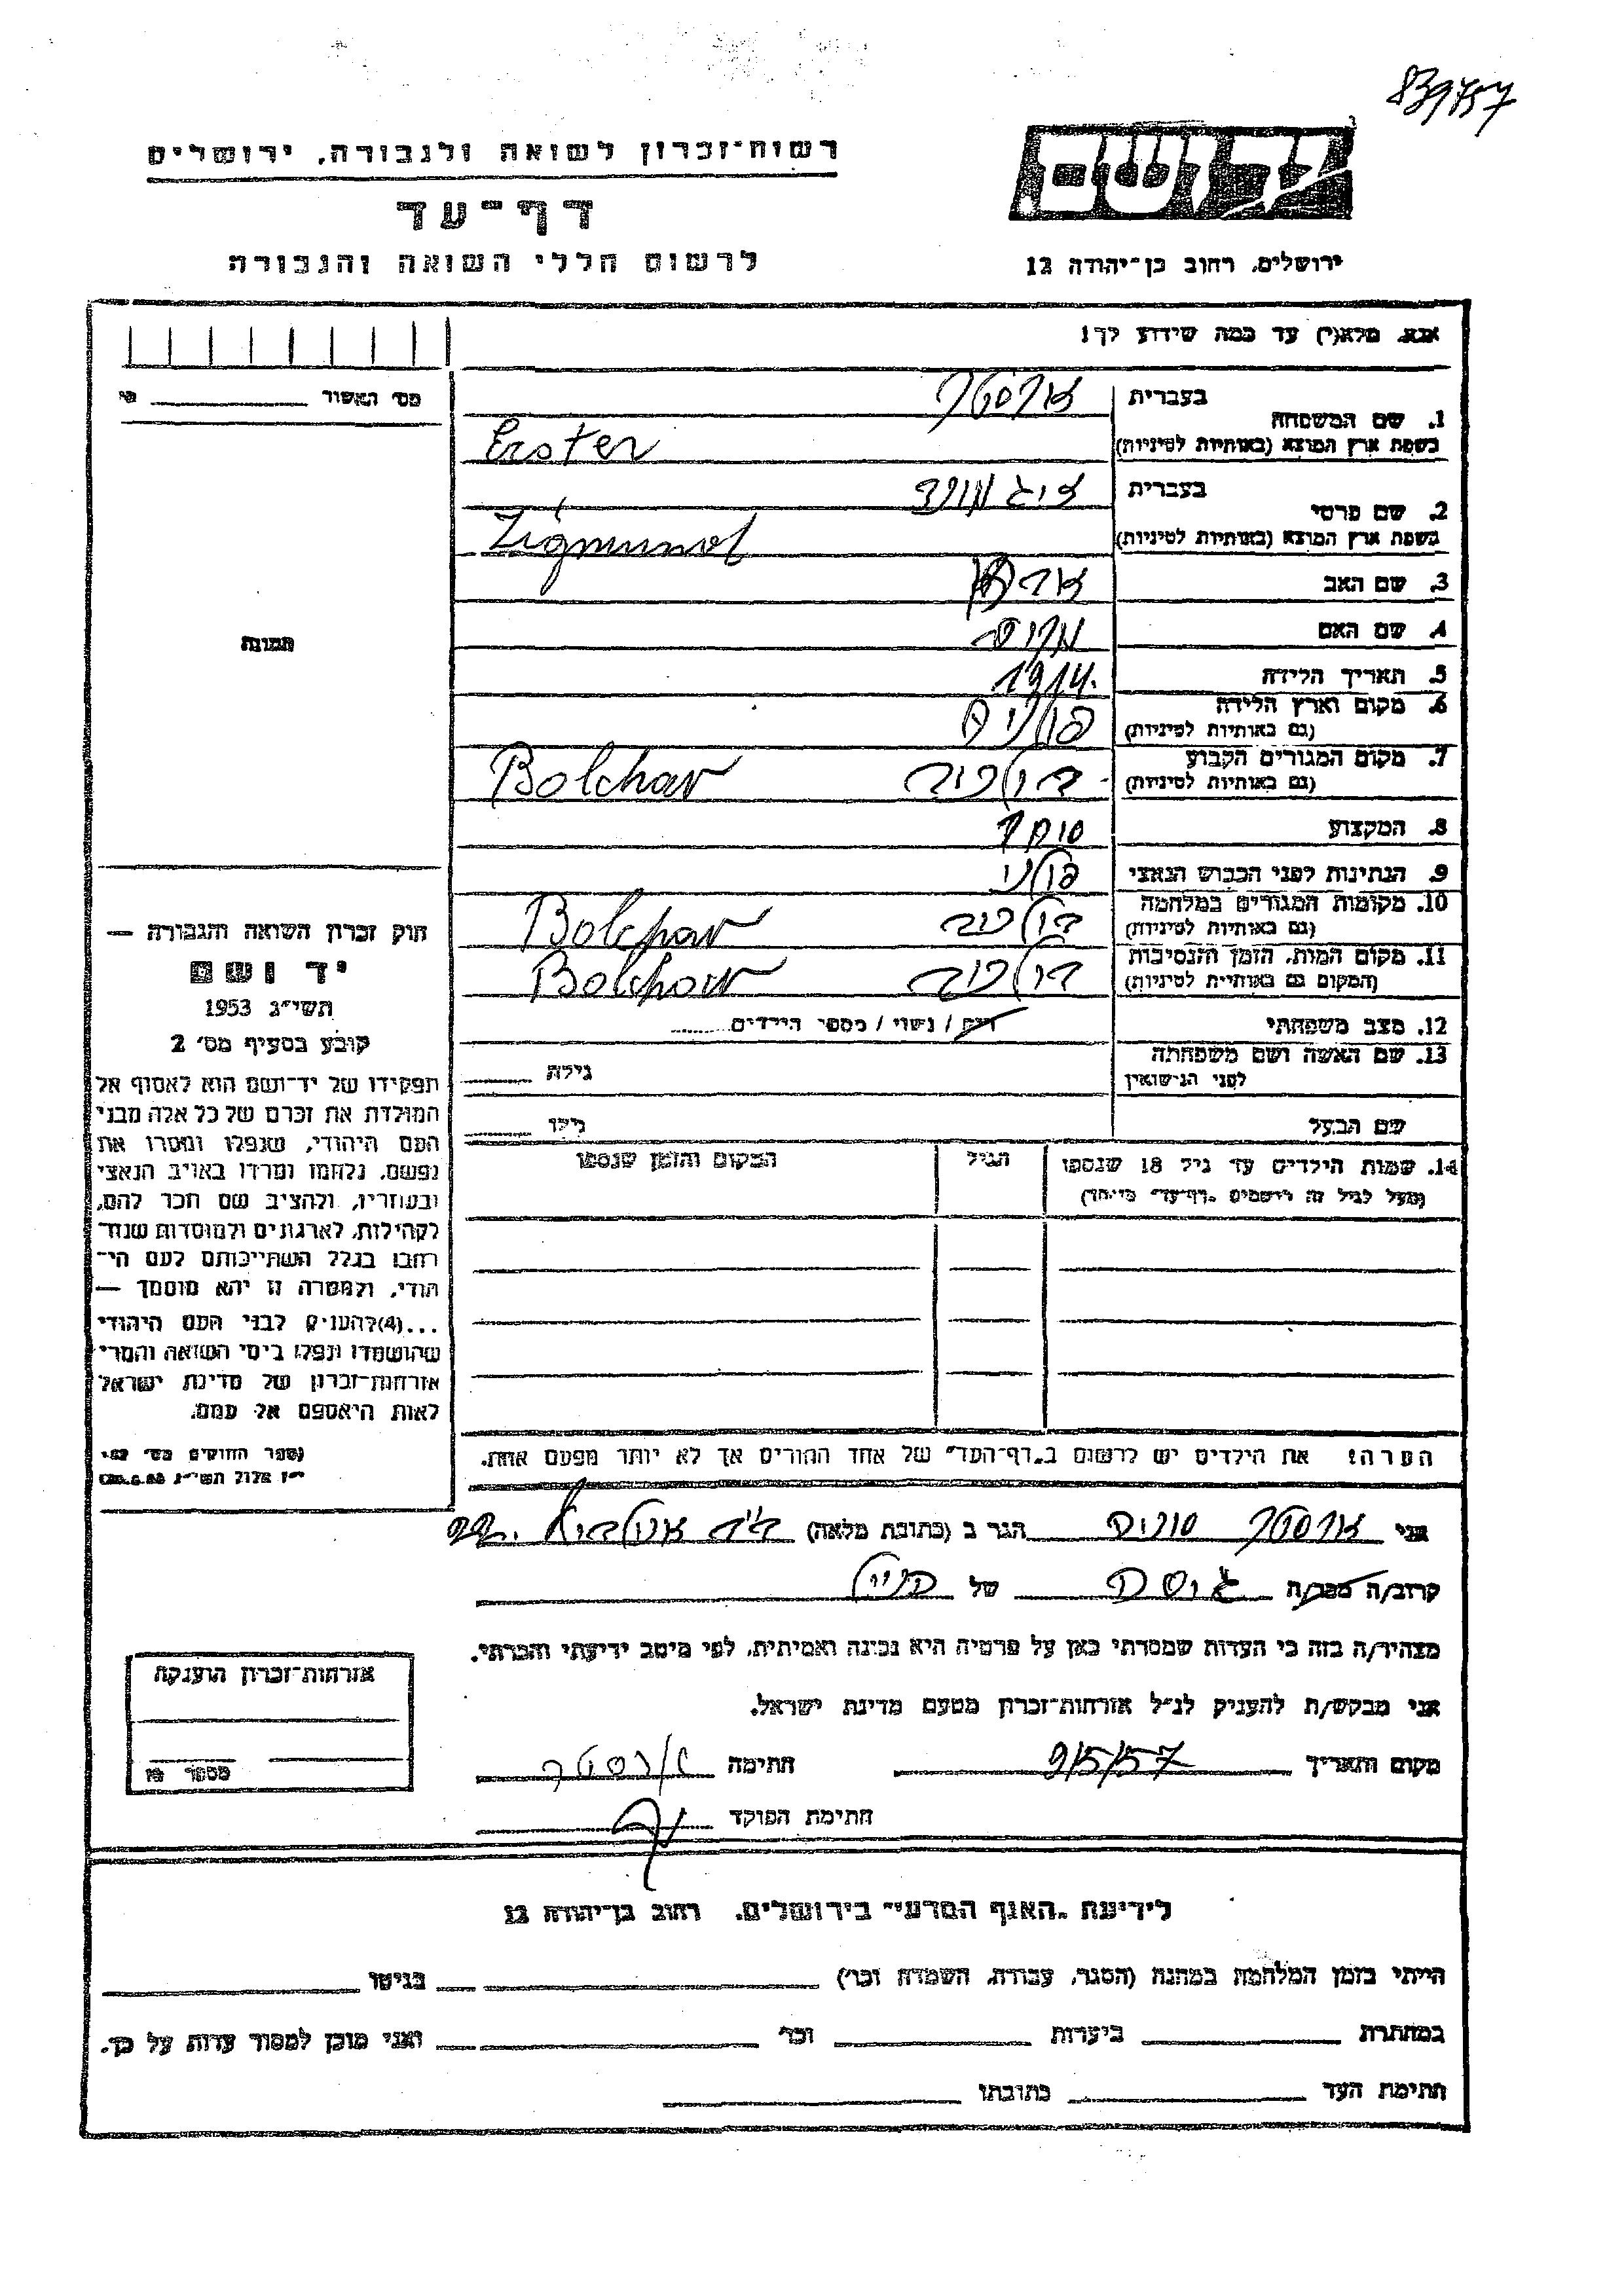 839757
רשות־זכרון לשואה ולגבורה, ירושלים
דף־עד
לרשום חללי השואה והגבורה
יד ושם
ירושלים, רחוב בן־יהודה 12
אנא, מלא(י) עד כמה שידוע לך!
מס׳ האשור
1. שם המשפחה
בעברית ארסטר
בשפת ארץ המוצא (באותיות לטיניות) Erster
2. שם פרטי
בעברית זיגמונד
בשפת ארץ המוצא (באותיות לטיניות) Zigmund
3. שם האב
4. שם האם
5. תאריך הלידה 1914.
6. מקום וארץ הלידה
(גם באותיות לטיניות) פולניה
7. מקום המגורים הקבוע
(גם באותיות לטיניות) בולחוב Bolchov
8. המקצוע סוחר
9. הנתינות לפני הכבוש הנאצי פולני
10. מקומות המגורים במלחמה
(גם באותיות לטיניות) בולחוב Bolchov
11. מקום המות, הזמן והנסיבות
(המקום גם באותיות לטיניות) בולחוב Bolchov
12. מצב משפחתי רווק / נשוי / מספר הילדים
13. שם האשה ושם משפחתה
לפני הנישואין גילה
שם הבעל גילו
14. שמות הילדים עד גיל 18 שנספו
(מעל לגיל זה רושמים „דף־עד״ מיוחד)
הגיל
המקום והזמן שנספו
הערה: את הילדים יש לרשום ב„דף־העד״ של אחד ההורים אך לא יותר מפעם אחת.
תמונה
חוק זכרון השואה והגבורה —
יד ושם
תשי״ג 1953
קובע בסעיף מס׳ 2
תפקידו של יד־ושם הוא לאסוף אל
המולדת את זכרם של כל אלה מבני
העם היהודי, שנפלו ומסרו את
נפשם, נלחמו ומרדו באויב הנאצי
ובעוזריו, ולהציב שם וזכר להם,
לקהילות, לארגונים ולמוסדות שנח־
רבו בגלל השתייכותם לעם הי־
הודי, ולמטרה זו יהא מוסמך —
...(4)להעניק לבני העם היהודי
שהושמדו ונפלו בימי השואה והמרי
אזרחות־זכרון של מדינת ישראל
לאות היאספם אל עמם.
(ספר החוקים מס׳ 132,
י״ז אלול תשי״ג
אני ארסטר הגר ב (כתובת מלאה)
קרוב/ה מכר/ה גיסה של הנ״ל
מצהיר/ה בזה כי העדות שמסרתי כאן על פרטיה היא נכונה ואמיתית, לפי מיטב ידיעתי והכרתי.
אני מבקש/ת להעניק לנ״ל אזרחות־זכרון מטעם מדינת ישראל.
מקום ותאריך 9/5/57 חתימה ארסטר
חתימת הפוקד
אזרחות־זכרון הוענקה
מספר
לידיעת „האגף המדעי״ בירושלים, רחוב בן־יהודה 12
הייתי בזמן המלחמה במחנה (הסגר, עבודת, השמדה וכו׳) בגיטו
במחתרת ביערות וכו׳ ואני מוכן למסור עדות על כך.
חתימת העד כתובתו